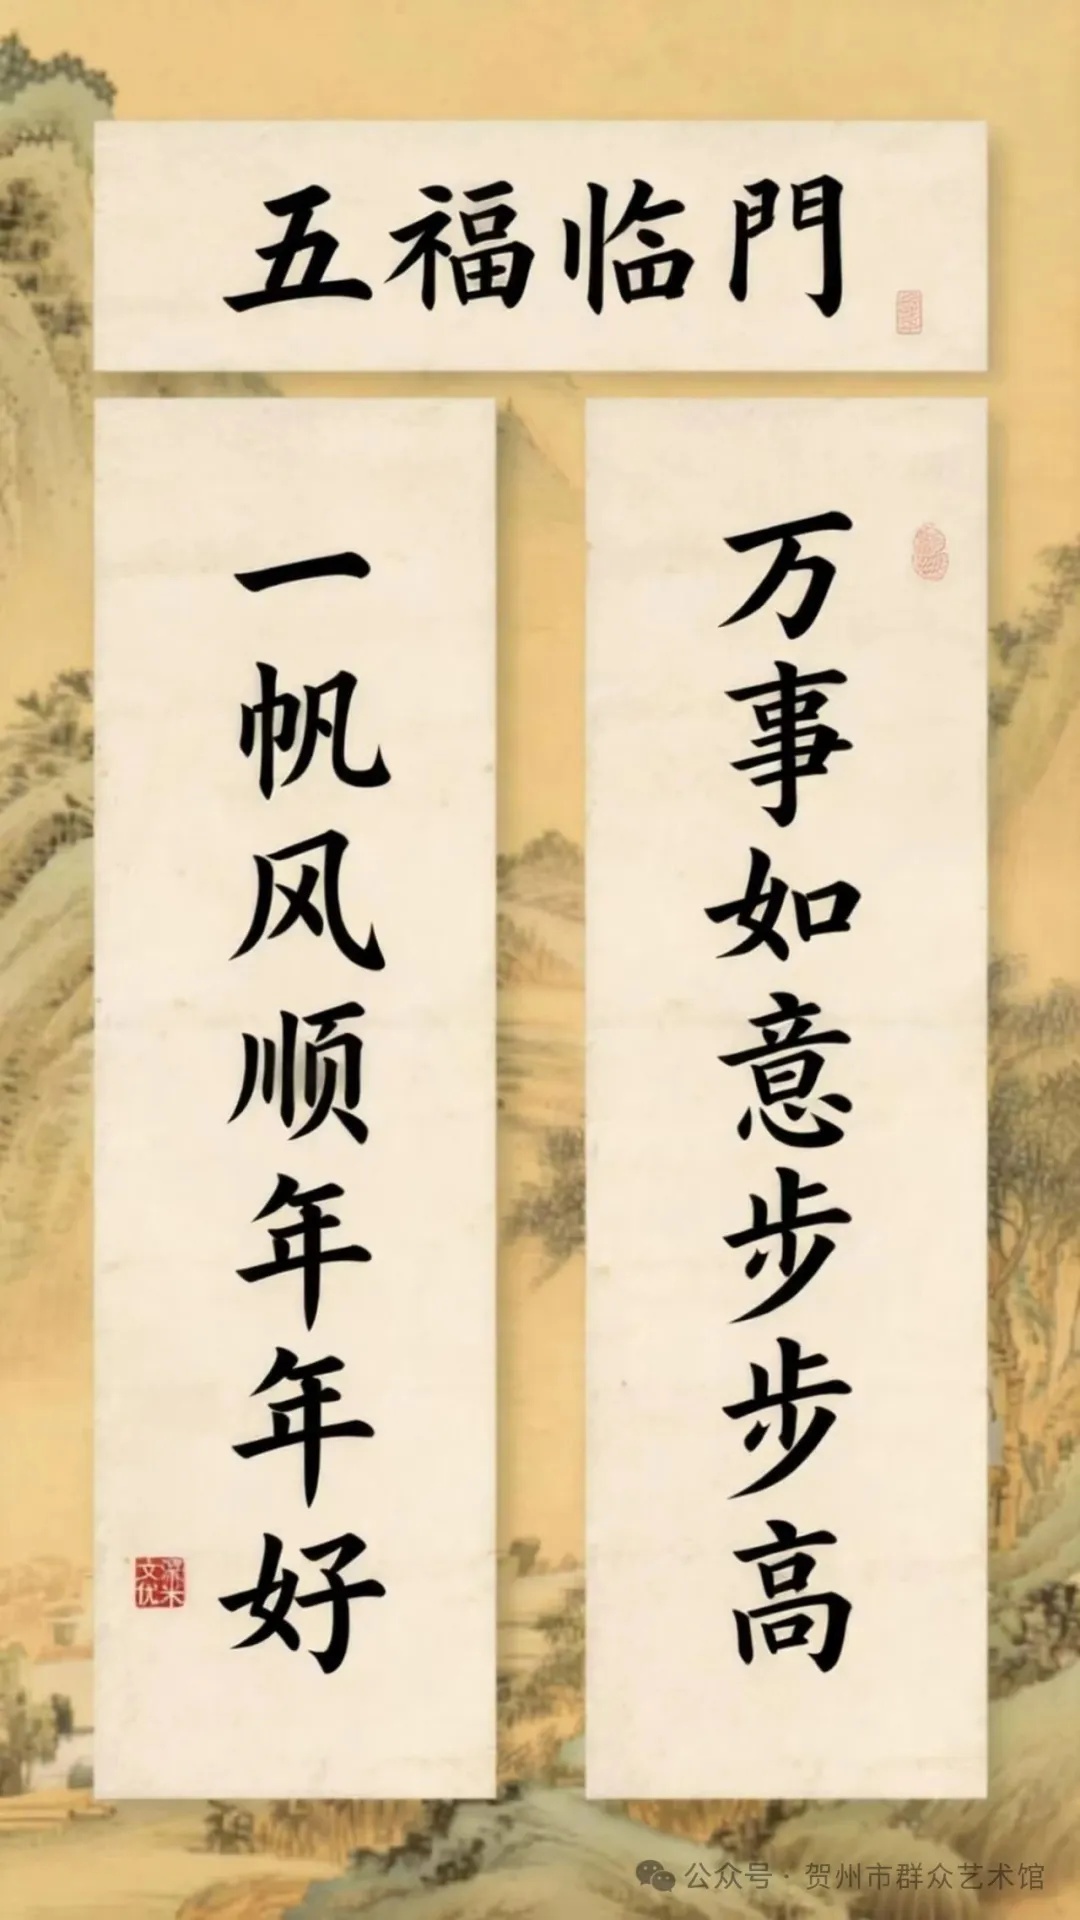 五福临門
万事如意步步高
一帆风顺年年好
公众号 · 贺州市群众艺术馆